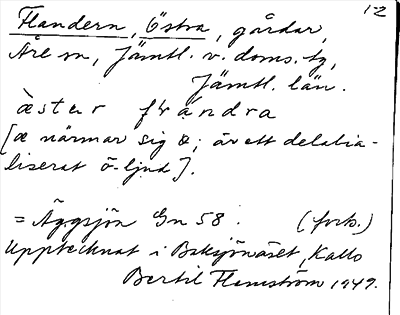 12
Flandern, Östra, gårdar,
Åre sn, Jämtl. v. doms. tg,
Jämtl. län.
æster flændra
[æ närmar sig œ; är ett delabia-
liserat ö-ljud].
= Äggsjön Gn 58. (forts.)
Upptecknat i Baksjönäset, Kalls
Bertil Flemström 1949.